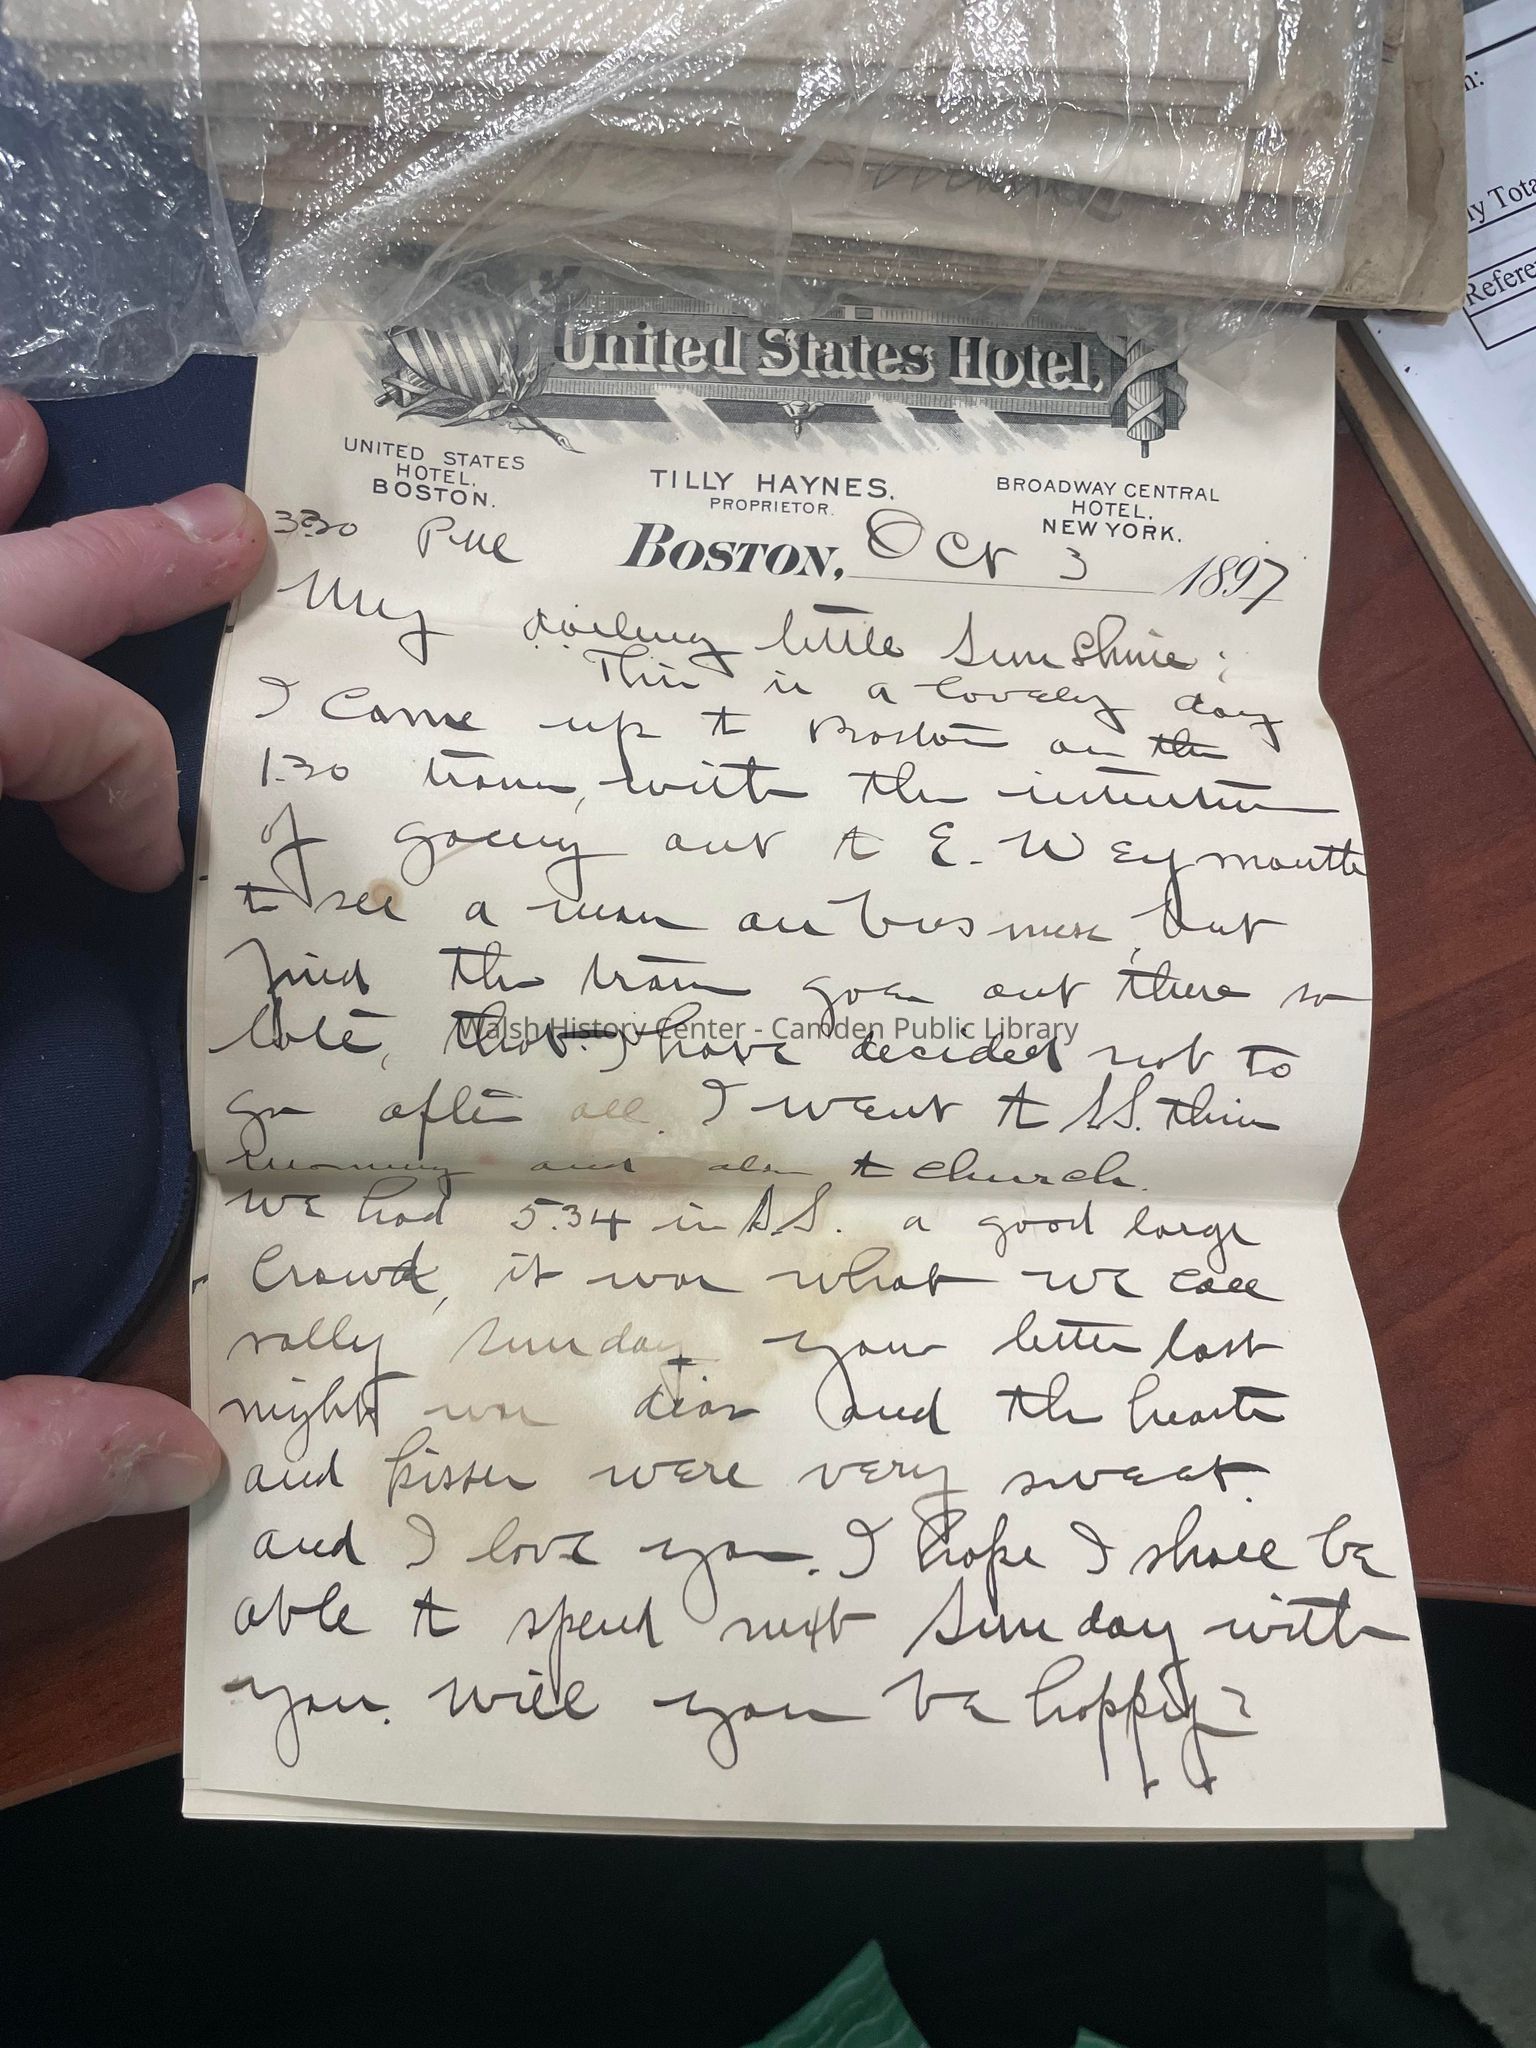 United States Hotel,
UNITED STATES
HOTEL,
BOSTON.
TILLY HAYNES,
PROPRIETOR.
BROADWAY CENTRAL
HOTEL,
NEW YORK.
3:30 P.M.
BOSTON, Oct 3 1897
My darling little Sunshine;
This is a lovely day
I came up to Boston on the
1:30 train, with the intention
of going out to E. Weymouth
to see a man on business, but
find the train goes out there so
late, that I have decided not to
go after all. I went to S.S. this
morning and also to church.
we had 534 in S.S. a good large
crowd, it was what we call
rally Sunday your letter last
night was dear and the hearts
and kisses were very sweet.
and I love you. I hope I shall be
able to spend next Sunday with
you. Will you be happy?
Walsh History Center - Camden Public Library
ly Tota
Refere